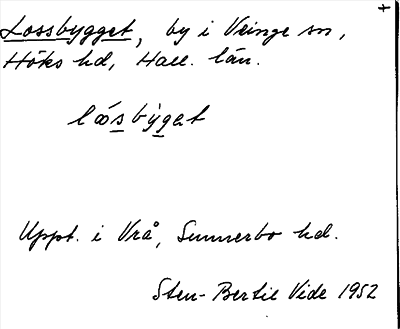 Lossbygget, by i Veinge sn,
Höks hd, Hall. län.
lòsbỳget
Uppt. i Vrå, Sunnerbo hd.
Sten-Bertil Vide 1952